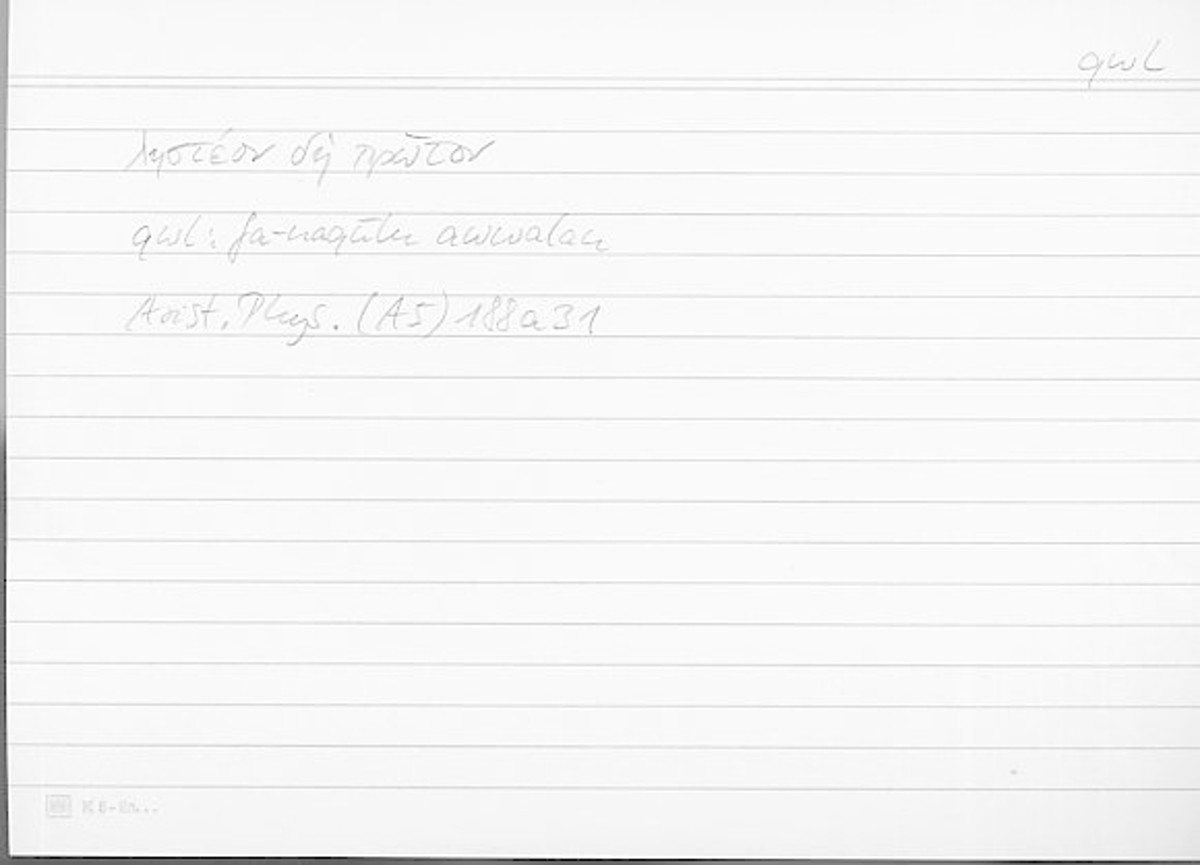 qwl
ληστέον δὴ πρῶτον
qwl: fa-naqūlu awwalan
Arist. Phys. (A5) 188a31